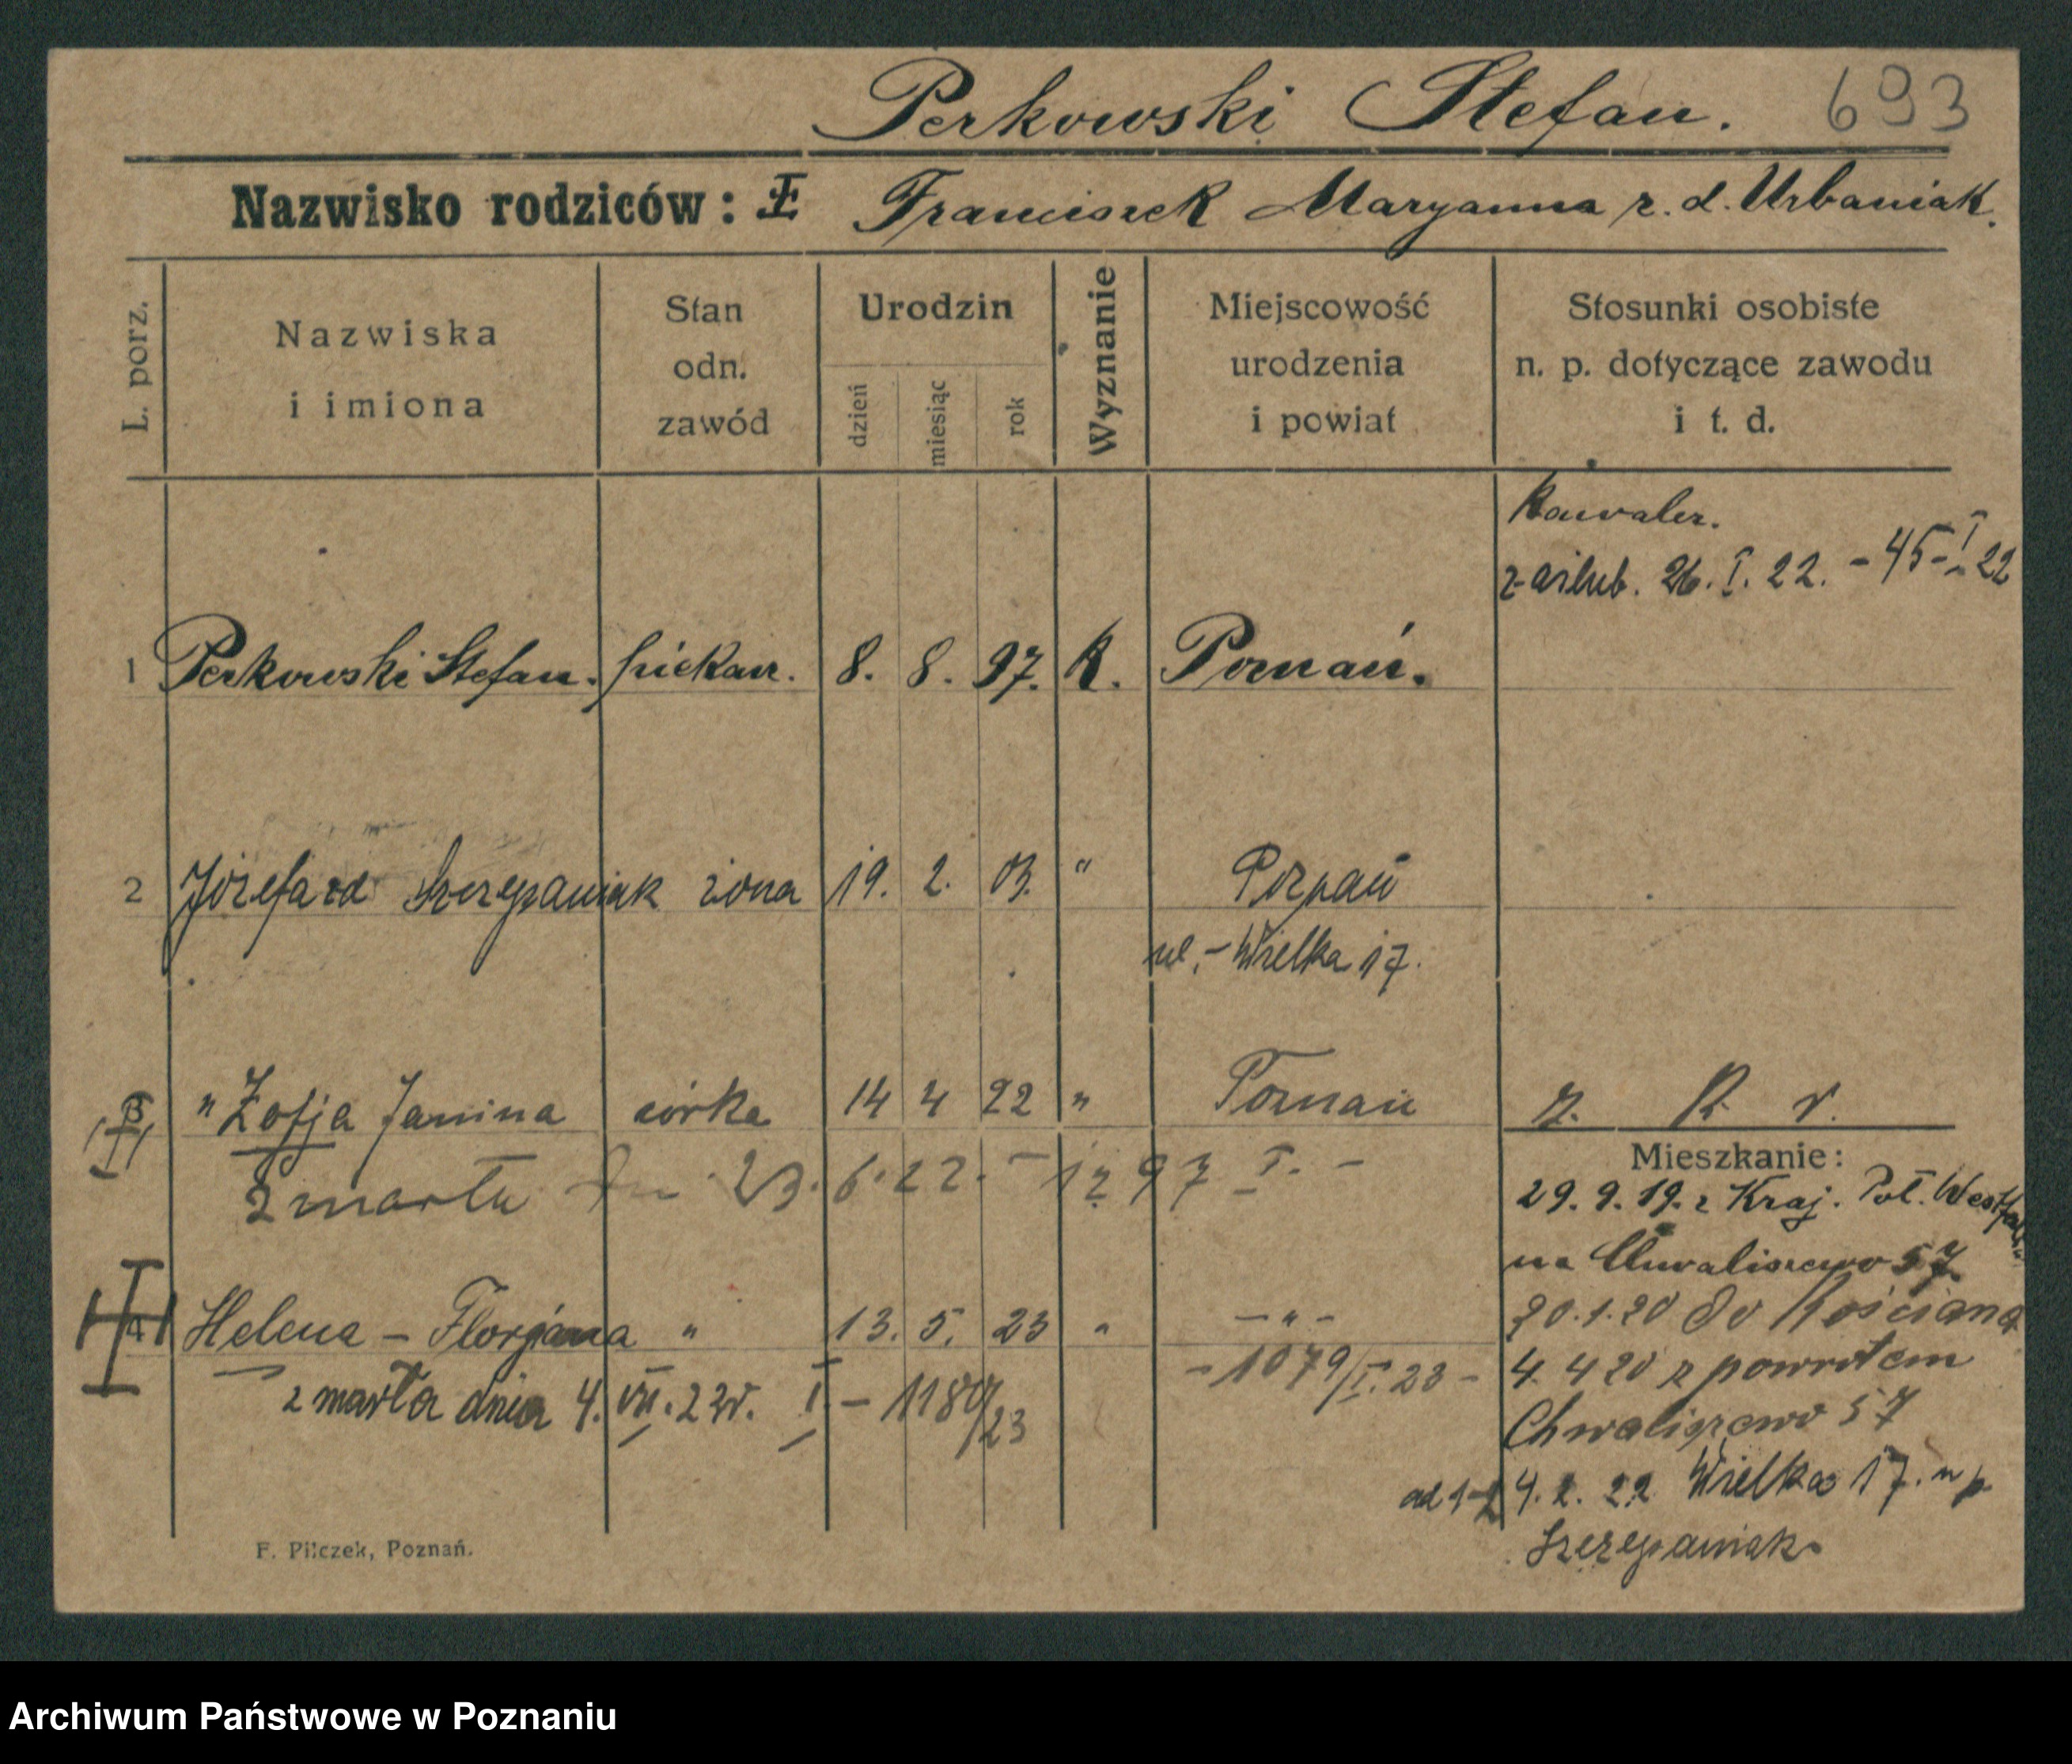 Perkowski Stefan. 693
Nazwisko rodziców: I Franciszek Maryanna r. d. Urbaniak.
L. porz.
Nazwiska
i imiona
Stan
odn.
zawód
Urodzin
dzień
miesiąc
rok
Wyznanie
Miejscowość
urodzenia
i powiat
Stosunki osobiste
n. p. dotyczące zawodu
i t. d.
Kawaler.
zaślub. 26. I. 22. - 45 - I 22
1 Perkowski Stefan. piekarz. 8. 8. 97. K. Poznań.
2 Józefa zd Szczepaniak żona 19. 2. 03. " Poznań
ul. - Wielka 17.
3 " Zofja Janina córka 14 4 22 " Poznań
Zmarła 23. 6. 22. - 1297 I. -
4 Helena - Florjana " 13. 5. 23 " - " -
- 1079/I. 23 -
zmarła dnia 4. VII. 23r. I - 1180/23
Mieszkanie:
29. 9. 19. z Kraj. Pol. Westfal
na Chwaliszewo 57.
20. 1. 20 do Kościana
4. 4 20 z powrotem
Chwaliszewo 57
ad 1-2 4. 2. 22 Wielka 17. u p.
Szczepaniak.
F. Pilczek, Poznań.
Archiwum Państwowe w Poznaniu